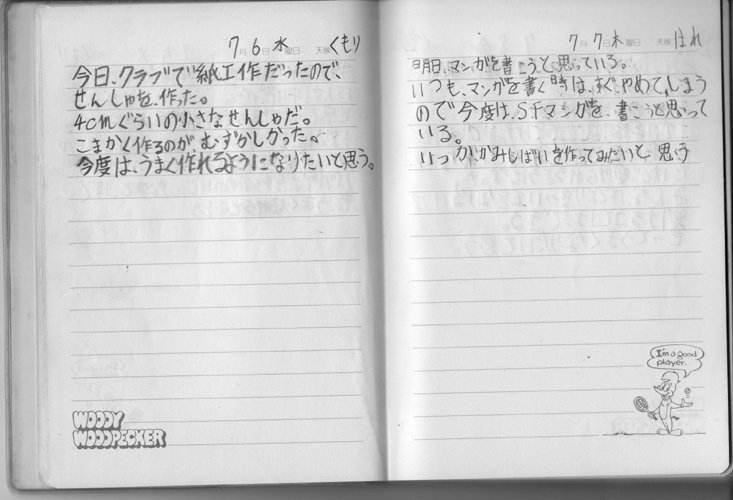 7月6日水曜日 天候くもり
今日、クラブで紙工作だったので、
せんしゃを、作った。
4cmぐらいの小さなせんしゃだ。
こまかく作るのが、むずかしかった。
今度は、うまく作れるようになりたいと思う。
WOODY
WOODPECKER
7月7日木曜日 天候はれ
明日、マンガを書こうと思っている。
いつも、マンガを書く時は、すぐ、やめてしまう
ので今度は、SFマンガを、書こうと思って
いる。
いつか、かみしばいを作ってみたいと、思う
I'm a good
player.